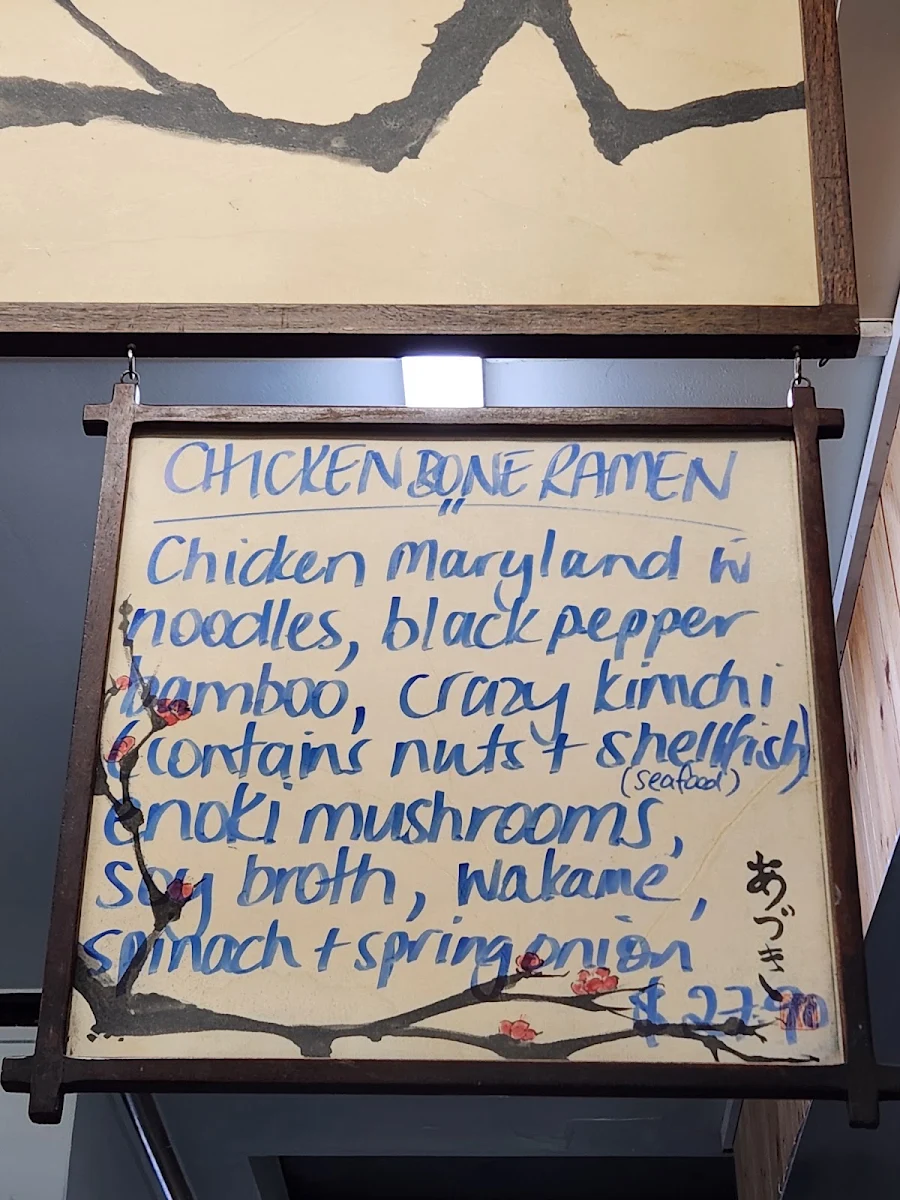 CHICKEN BONE RAMEN
Chicken Maryland w
noodles, black pepper
bamboo, crazy kimchi
(contains nuts + shellfish)
(seafood)
enoki mushrooms,
soy broth, wakame,
spinach + spring onion
$ 27.90
あづき